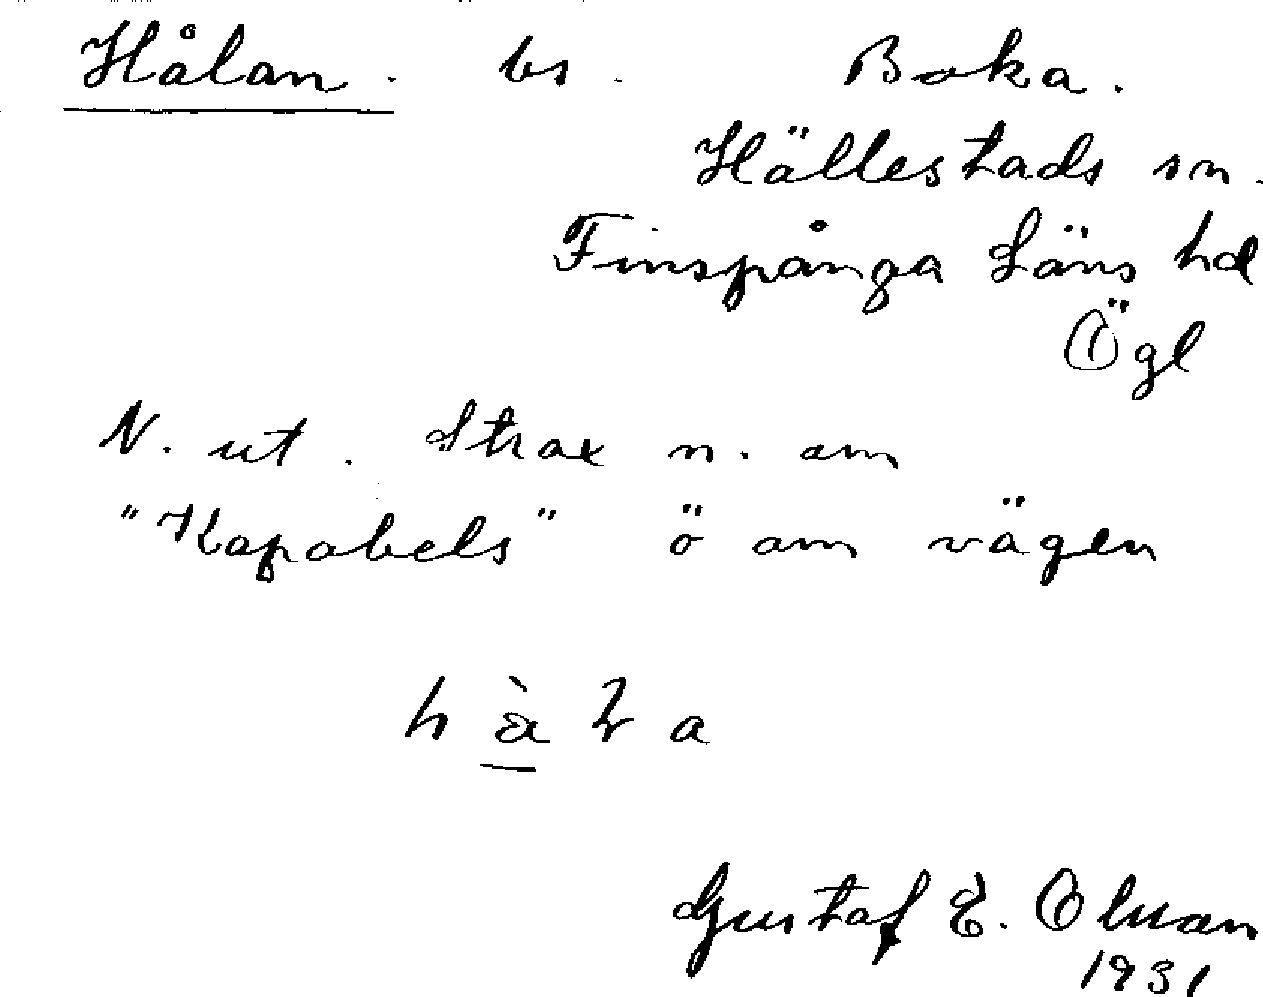 Hålan. bs. Boka.
Hällestads sn.
Finspånga Läns hd
Ögl
N. ut. Strax n. om
"Kapabels" ö om vägen
Gustaf E. Olsson
1931